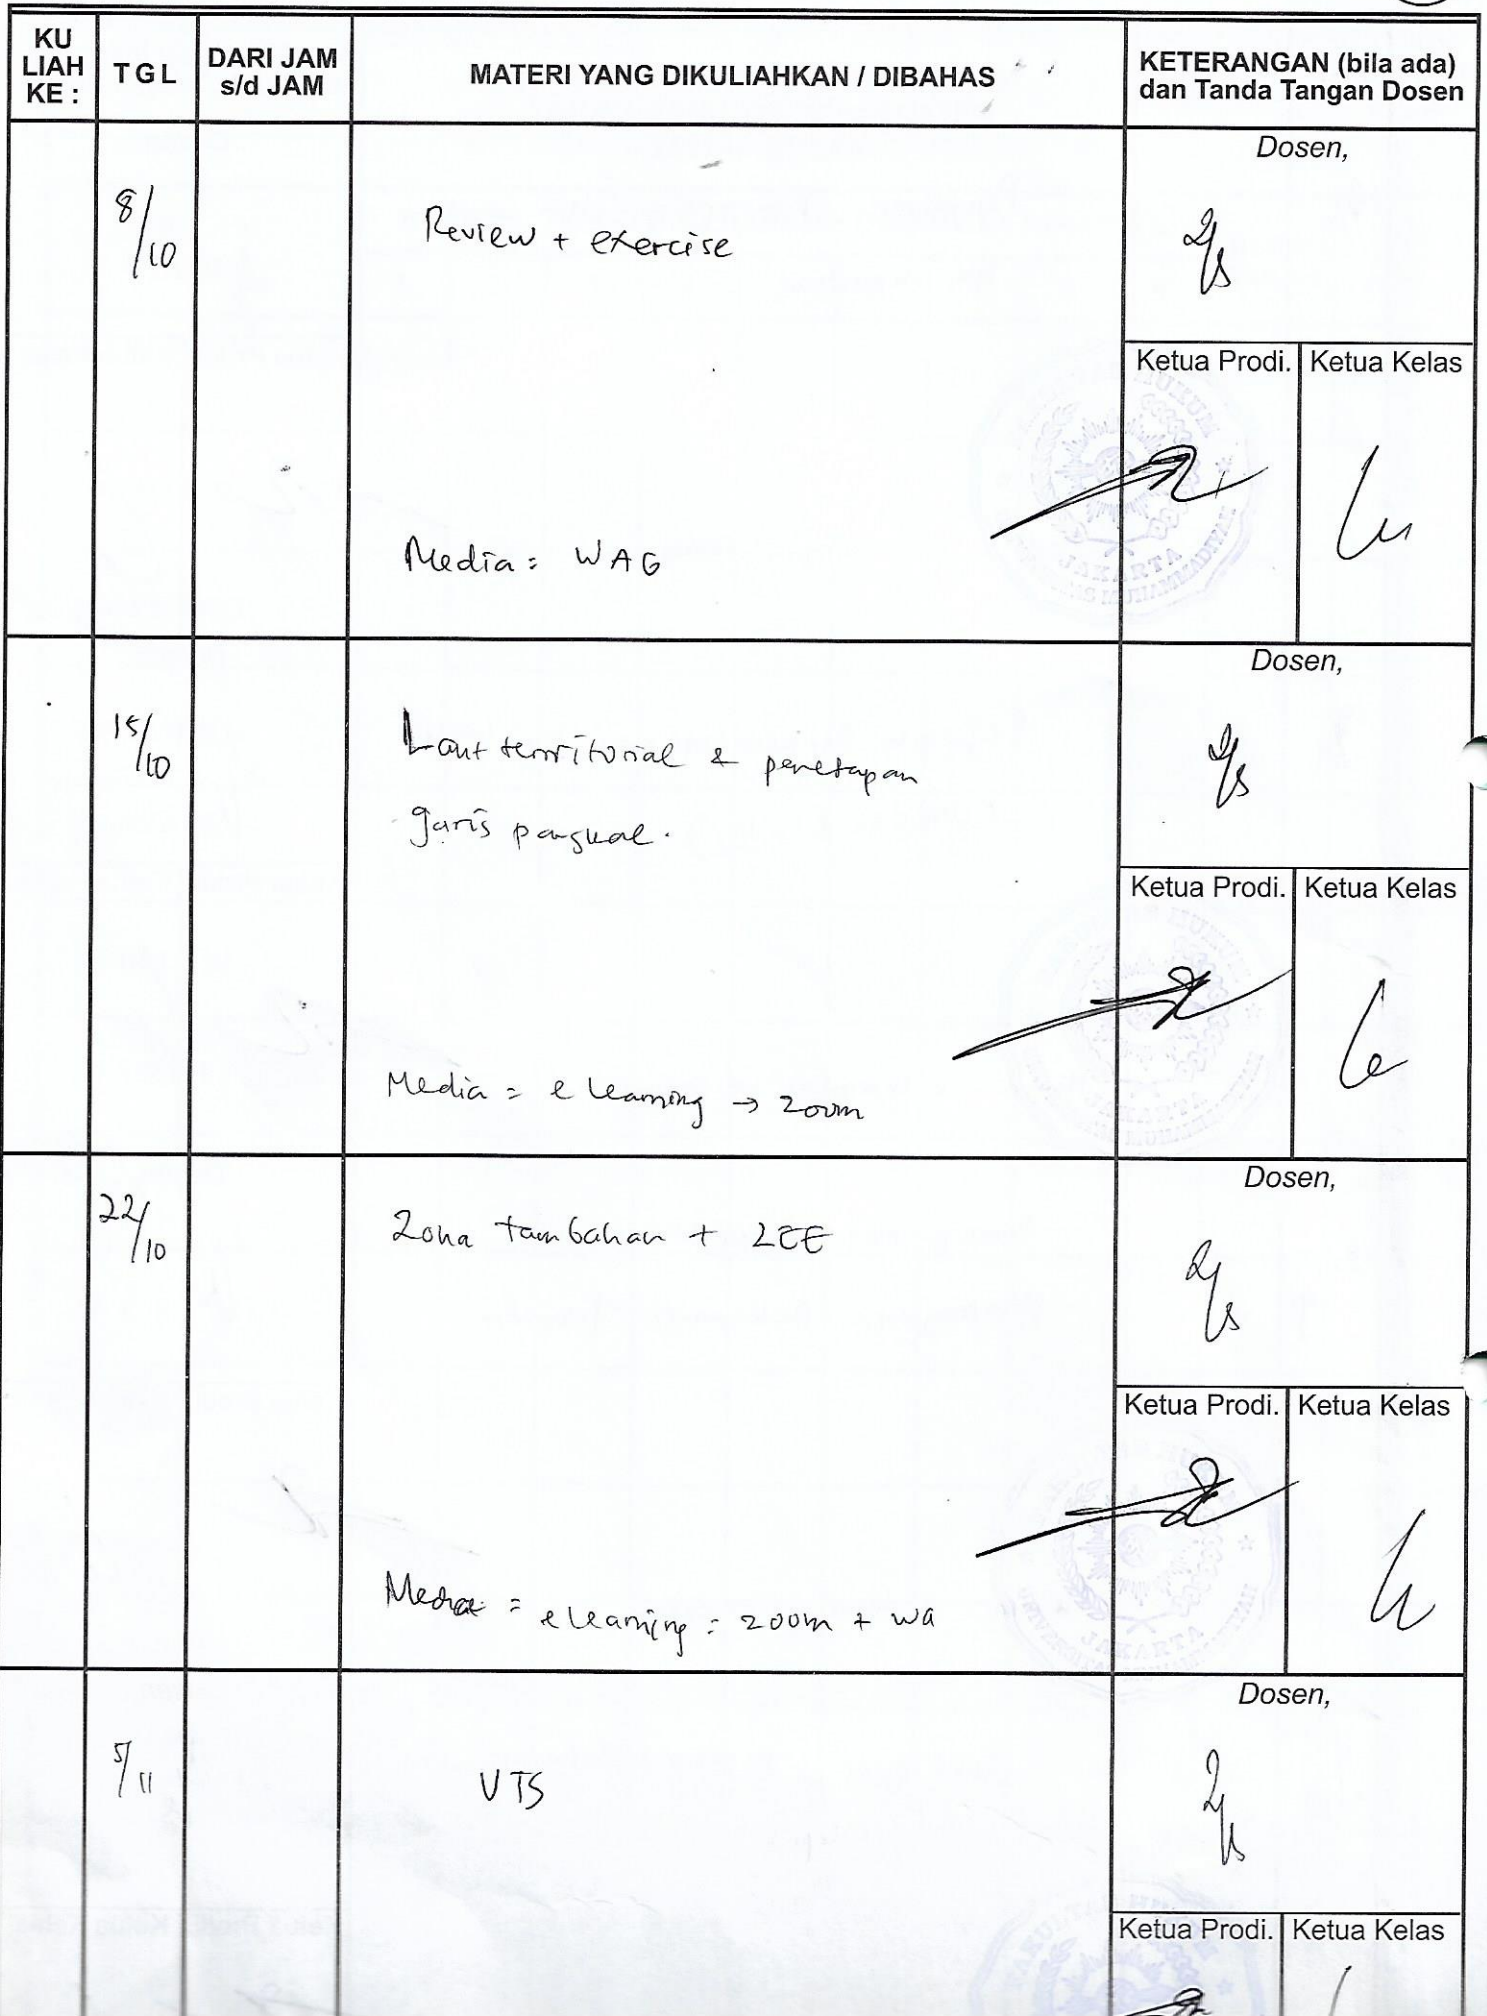 KU
LIAH
KE :
TGL
DARI JAM
s/d JAM
MATERI YANG DIKULIAHKAN / DIBAHAS
KETERANGAN (bila ada)
dan Tanda Tangan Dosen
8/10
Review + exercise
Media : WAG
Dosen,
Ketua Prodi.
Ketua Kelas
JAKARTA
15/10
Laut territorial & penetapan
garis pangkal.
Media = e learning → zoom
Dosen,
Ketua Prodi.
Ketua Kelas
22/10
Zona tambahan + ZEE
Media = e learning = zoom + wa
Dosen,
Ketua Prodi.
Ketua Kelas
JAKARTA
5/11
UTS
Dosen,
Ketua Prodi.
Ketua Kelas